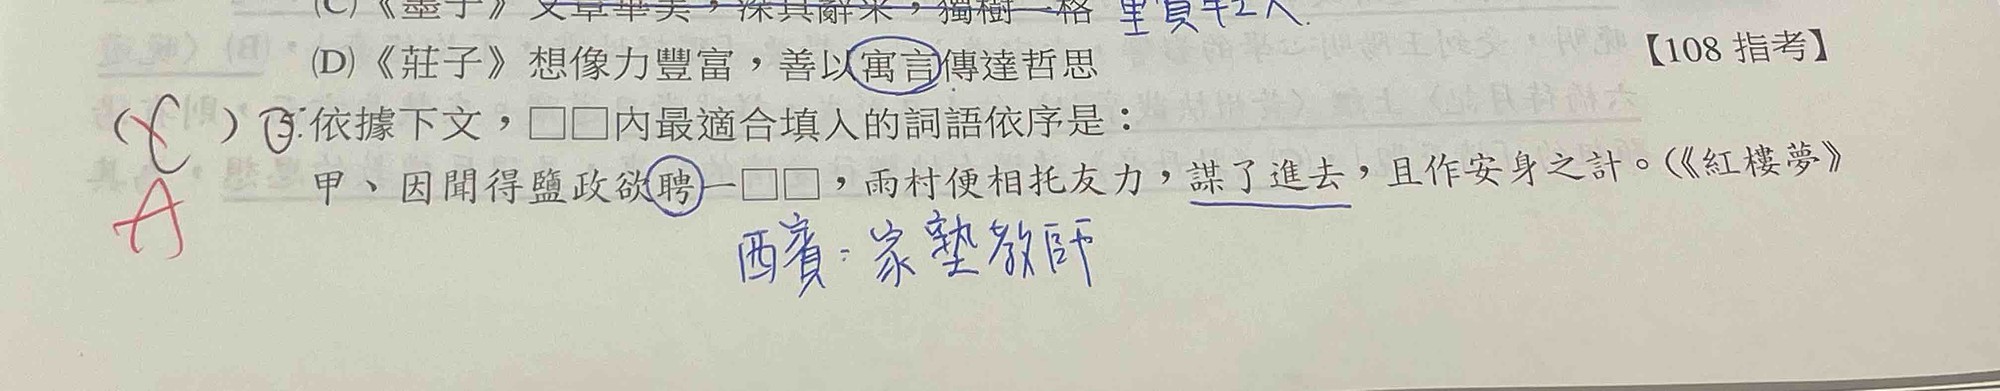 (C)《墨子》文章華美，深具辭采，獨樹一格 重質輕文
(D)《莊子》想像力豐富，善以寓言傳達哲思 【108 指考】
(C) 5.依據下文，□□內最適合填入的詞語依序是：
A 甲、因聞得鹽政欲聘一□□，雨村便相托友力，謀了進去，且作安身之計。(《紅樓夢》
西賓：家塾教師